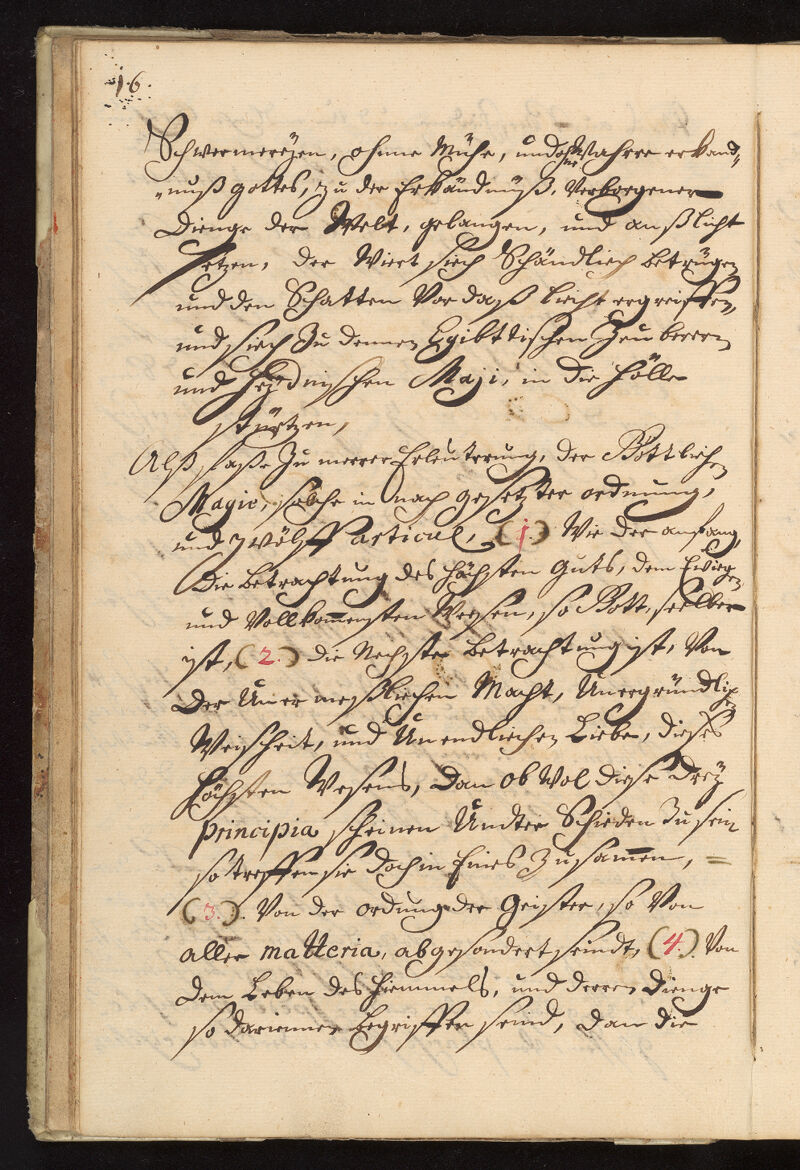 16.
Schwermereÿen, ohnne Mühe, und ohne Wahrre erkand„
„nuß gottes, zu der Erkändnüß, Verborgener
Dienge der Welt, gelangen, und anß licht
setzen, der Wiert siech Schändliech betrügen
und den Schatten Vor daß liecht ergreiffen,
und siech zu dennen Egibttischen Zeuberern
und Heÿdnischen Maji, in die Hölle
stürtzen,
Alß fasse zu merrer Erleuterung, der Göttliech
Magie, solche in nach gesetzter ordnung,
und zwölff articul, (1) Wie der anfang,
Die betrachtung des Höchsten Guts, dem Ewiegen
und Vollkom̄ensten Wesen, so Gott, selber
ist, (2.) die Nechste betrachtung ist, Von
Der Unermeßliechen Macht, Unergründlichen
Weisheit, und Unendliechen Liebe, dieses
Höchsten Wesens, dan ob Wol diese dreÿ
principia scheinen Undter Schieden zu sein
so treffen sie doch in Eines zusam̄en, =
(3.). Von der ordung der Geister, so Von
aller matteria, abgesondert seindt, (4.). Von
dem Leben des Hiemmels, und derren dienge
so dariennen begriffen seind, dan die